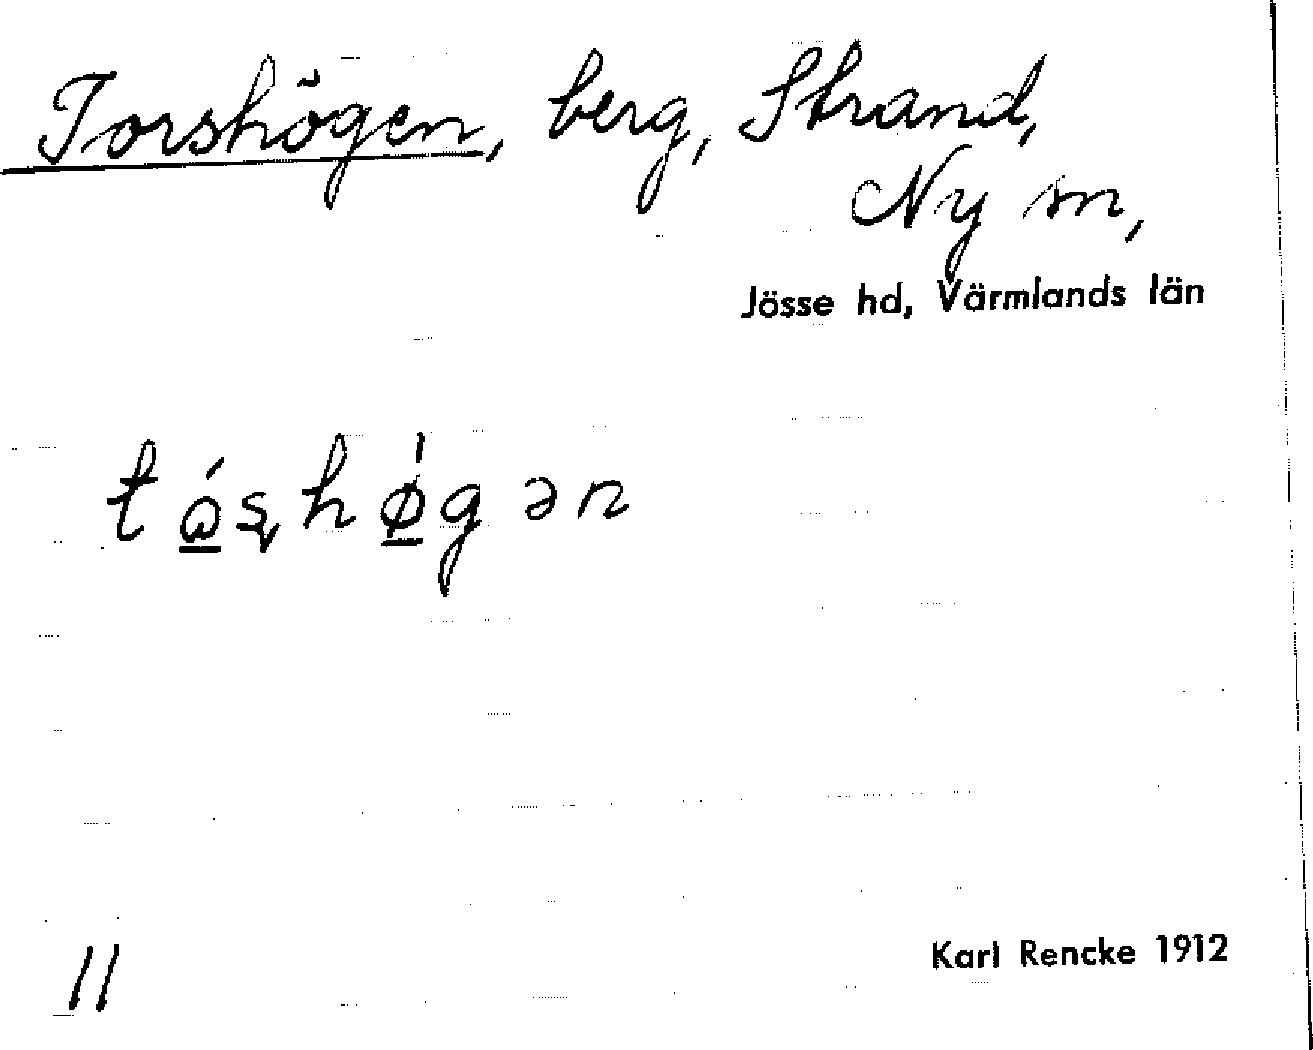 Torshögen, berg, Strand,
Ny sn,
Jösse hd, Värmlands län
tǫ́ʂhǿ̱gən
11
Karl Rencke 1912